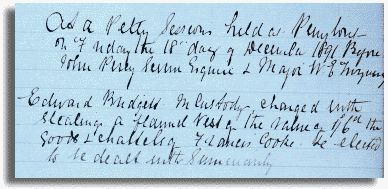 At a Petty Sessions held at Penybont
on Friday the 18th day of December 1891 Before
John Percy Severn Esquire & Major W E
Edward Bridgett In Custody, charged with
stealing a flannel Vest of the value of 1/6d the
Goods & chattels of James Cooke. He elected
to be dealt with Summarily